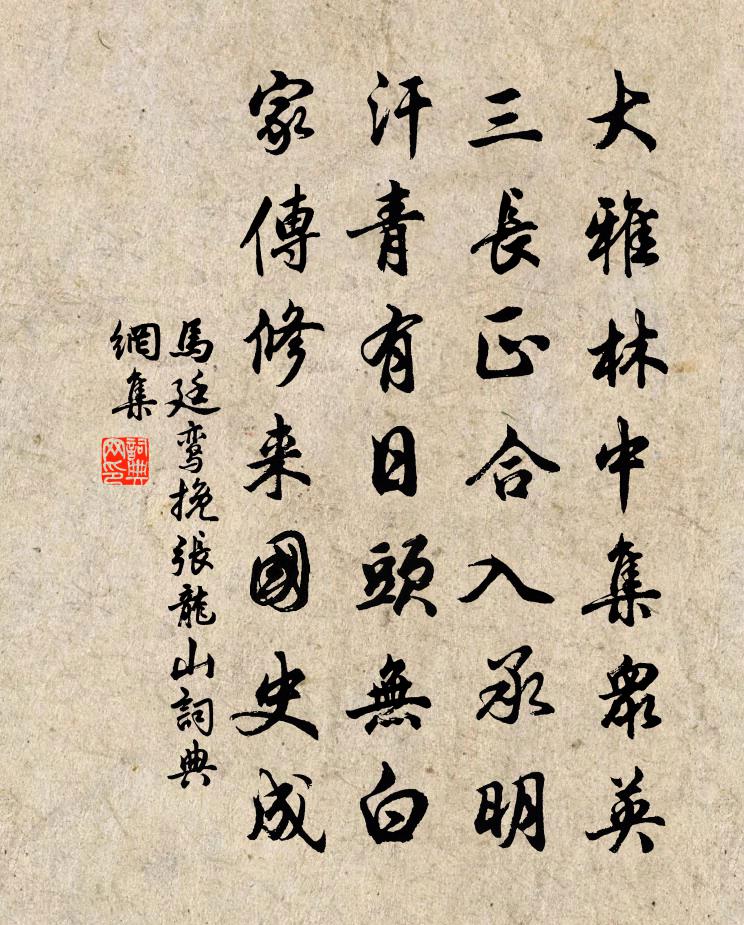 大雅林中集眾英
三長正合入承明
汗青有日頭無白
家傳修来國史成
馬廷鸞挽張龍山詞典
網集
詞典
网印